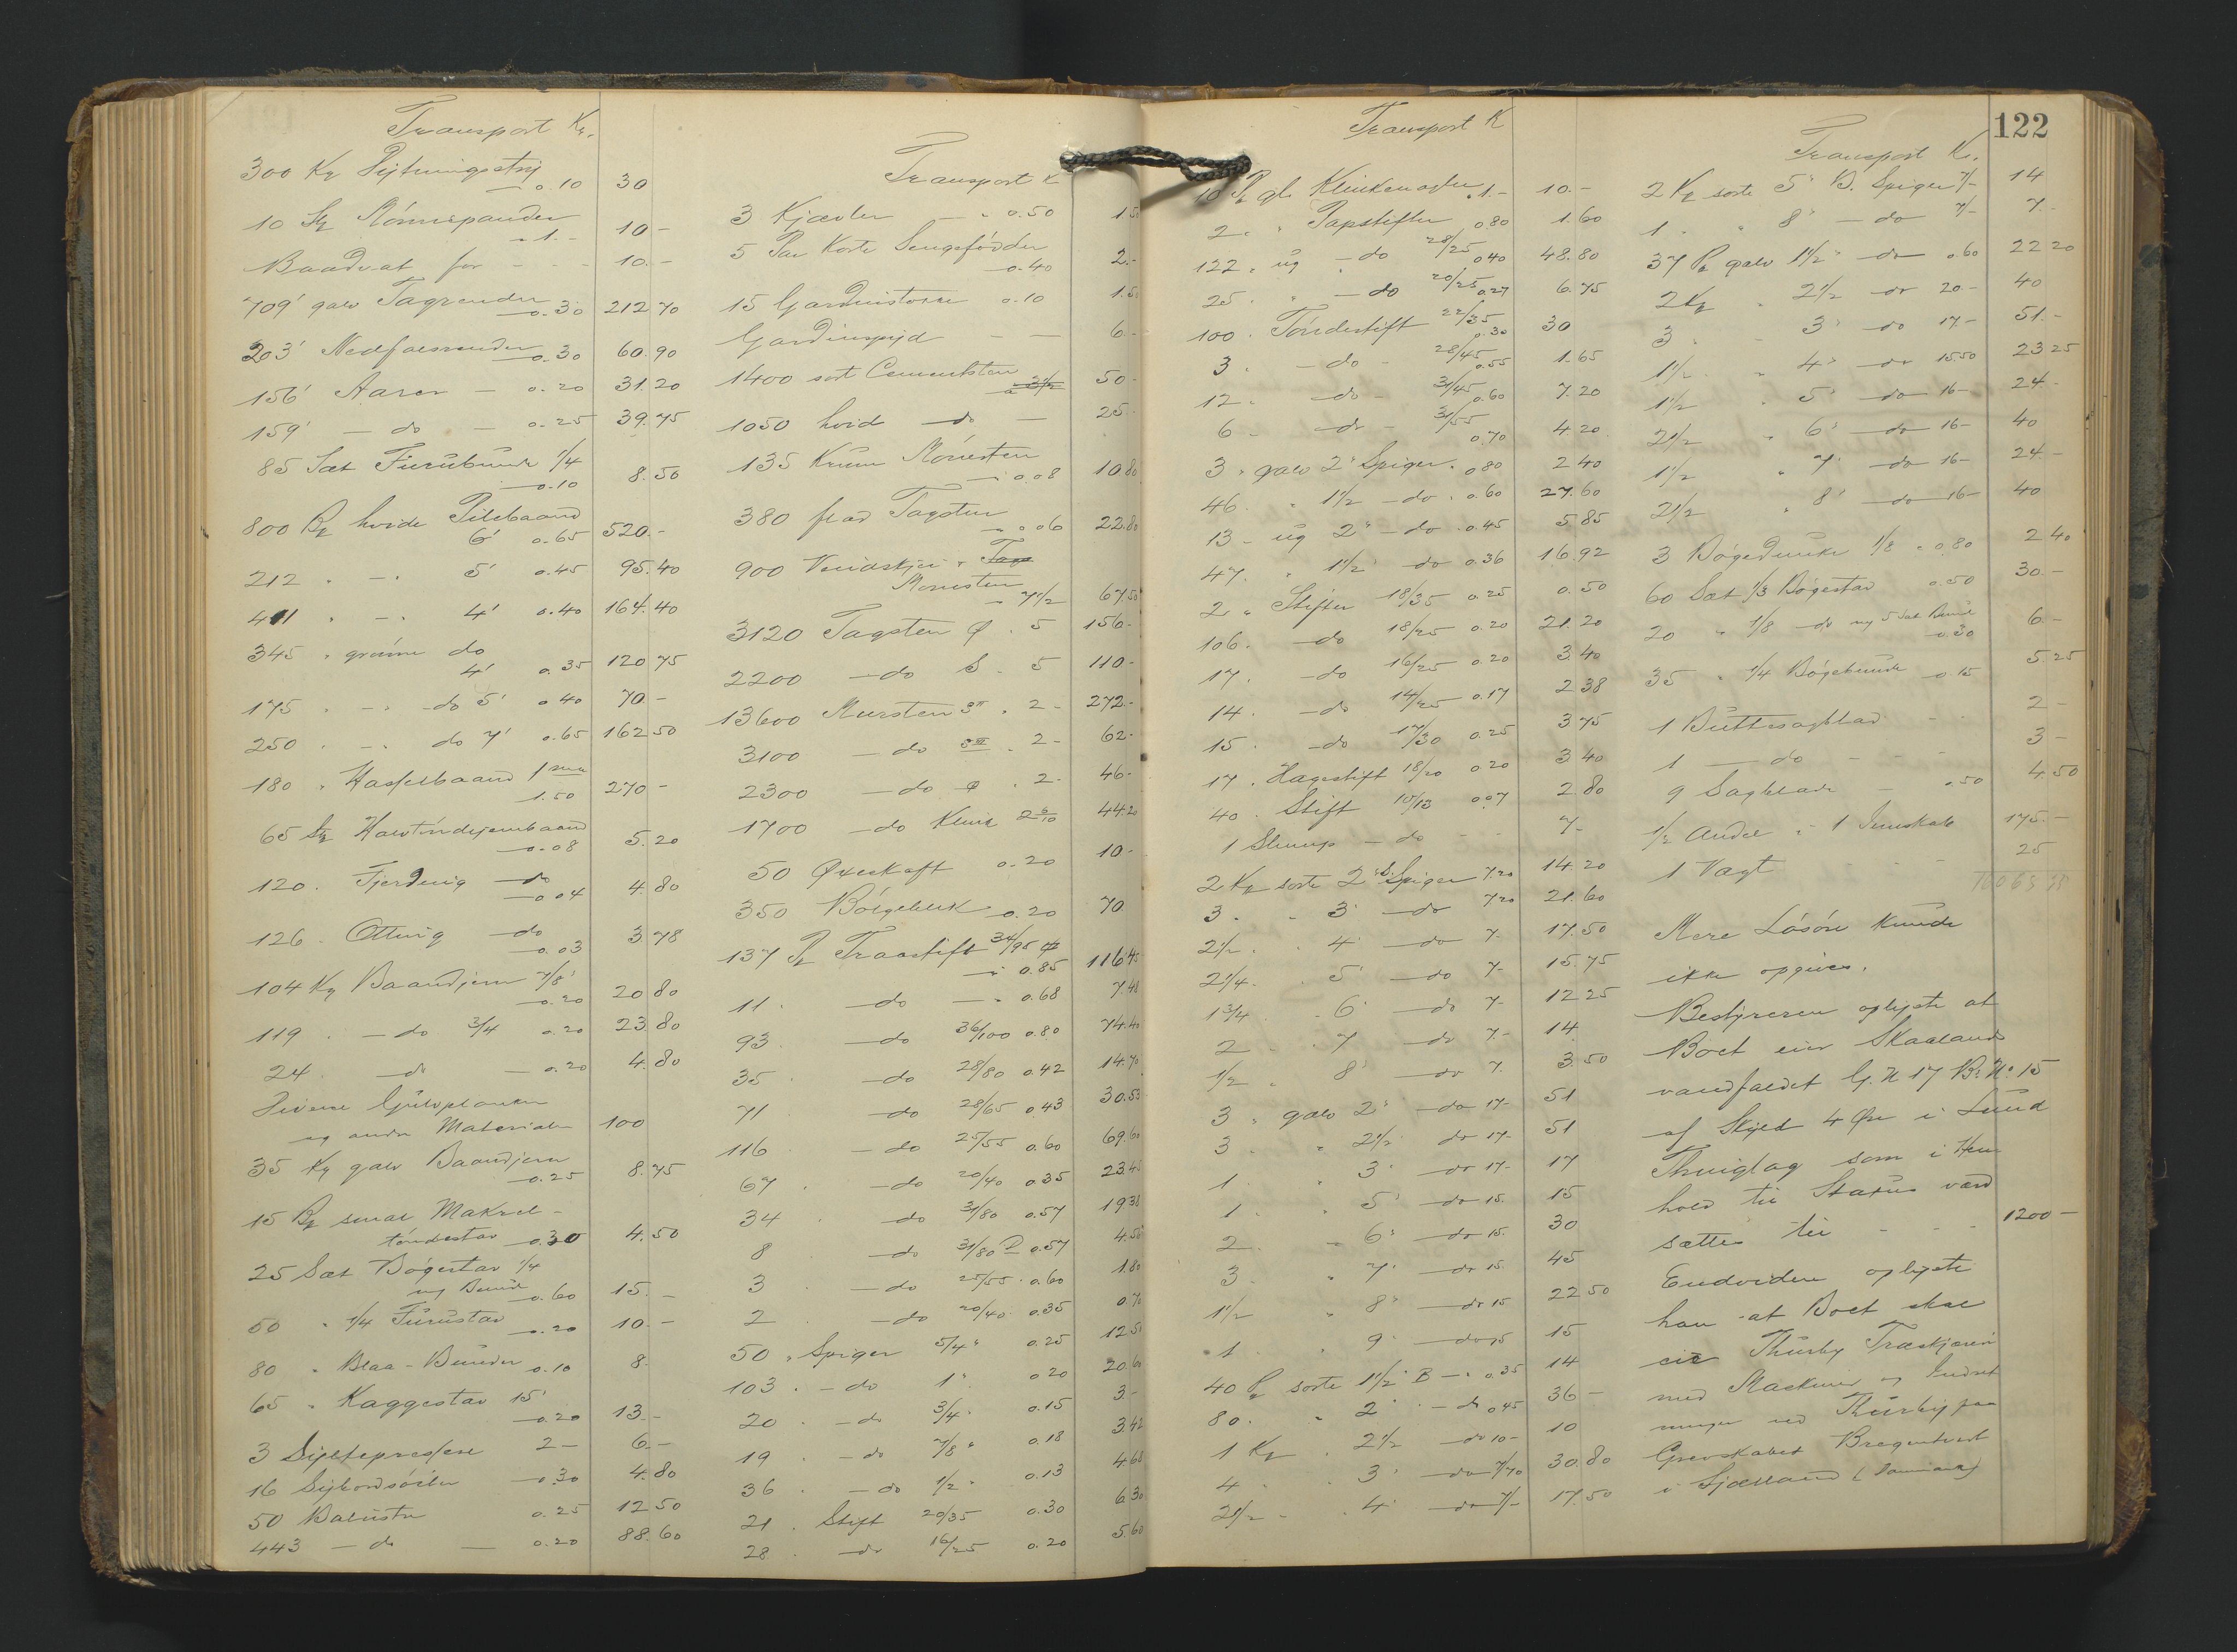 Transport Kr.
300 Kg
0.10 30
10 St
1.- 10 -
Baadvat for - - - 10.-
709' galv Tagrender
0.30 212 70
203'
0.30 60.90
156' Aarer - 0.20 31.20
159' - do - 0.25 39.75
85 Sæt Furubunde 1/4
0.10 8.50
800 Bt hvide Pilebaand
6' 0.65 520.-
212 " - " 5' 0.45 95.40
411 " - " 4' 0.40 164.40
345 " grønne do
4' 0.35 120 75
175 " - " do 5' 0 40 70.-
250 " - " do 7' 0.65 162 50
180 " Hasselbaand
1.50 270 -
65 St Halvtöndejernbaand
0.08 5.20
120 . Fjerding do
0 04 4.80
126 . Otting do
0.03 3.78
104 Kg Baandjern 7/8'
0.20 20 80
119 . - do 3/4 0.20 23.80
24 . - do - 0.20 4.80
Diverse Gulvplanker
og andre Materialer 100
35 Kg galv Baandjern
0.25 8.75
15 Bt smal Makrel-
töndestav 0.30 4.50
25 Sæt Bögestav 1/4
og Bunde 0.60 15.-
50 " 1/4 Furustav
0.20 10 -
80 " Blaa-Bunder 0.10 8 -
65 " Kaggestav 15'
0.20 13 -
3 Syltepressere 2 - 6.-
16 Sybordsöiler 0.30 4.80
50 Baluster 0.25 12 50
443 - do - 0.20 88.60
Transport K
3 Kjævler - " 0.50 1 50
5 Par Korte Sengefödder
0.40 2.-
15 Gardinstokke 0.10 1.50
Gardinspyd - - 6 -
1400 sort Cementsten
50 -
1050 hvid - do - 25 -
135 Krum Mönesten
0.08 10 80
380 flad Tagsten
0.06 22.80
900 Vindskjei "
Mönesten
7 1/2 67.50
3120 Tagsten Ø . 5 156 -
2200 - do S . 5 110 -
13600 Mursten . 2 - 272.-
3100 - do . 2 - 62 -
2300 - do Ø . 2 - 46 -
1700 - do 44.20
50 Öxeskaft 0.20 10 -
350 0.20 70
137 Pk Traadstift 34/95
0.85 116 45
11 . - do - " 0.68 7.48
93 . - do 36/100 0.80 74.40
35 . - do 28/80 0.42 14.70
71 . - do 28/65 0.43 30.53
116 . - do 25/55 0.60 69.60
67 . - do 20/40 0 35 23.45
34 . - do 31/80 0.57 19 38
8 . - do 31/80 D 0.57 4.56
3 . - do 25/55 . 0.60 1.80
2 . - do 20/40 0.35 0.70
50 " Spiger 5/4" 0.25 12 50
103 . - do 1" 0 20 20.60
20 . - do 3/4" 0.15 3 -
19 . - do 7/8 " 0.18 3.42
36 . - do 1/2" 0.13 4.68
21 . Stift 20/35 0.30 6 30
28 . - do 16/25 0.20 5.60
Transport K
10 Pk gl. Klinkenagler 1 - 10.-
2 " " Papstifter 0 80 1.60
122 " ug - do 28/25 0 40 48.80
25 . " - do 20/25 0.27 6.75
100 . Töndestift 22/35 0 30 30
3 . - do - 28/45 0.55 1.65
12 . - do - 31/45 0.60 7.20
6 - - do - 31/55 0.70 4.20
3 " galv 2" Spiger . 0 80 2 40
46 . " 1 1/2 - do . 0.60 27.60
13 - ug 2" - do . 0.45 5 85
47 . " 1 1/2 " do 0.36 16.92
2 " Stifter 18/35 0 25 0.50
106 . - do 18/25 0.20 21.20
17 . - do 16/25 0.20 3 40
14 . - do 14/25 0.17 2 38
15 . - do 17/30 0.25 3 75
17 . Hagestift 18/20 0 20 3 40
40 . Stift 15/13 0.07 2 80
1 Slump - do - - 7 -
2 Kg sorte 2" S. Spiger 7.10 14.20
3 . " 3" - do 7 20 21.60
2 1/2 . . 4" - do 7 - 17.50
2 1/4 . . 5" - do 7 - 15.75
1 3/4 . . 6" - do 7 - 12 25
2 . . 7" - do 7.- 14
1/2 . . 8" - do 7. 3.50
3 " galv 2" - do 17 - 51
3 . " 2 1/2 " do 17 - 51
1 . " 3" - do 17 - 17
1 . " 5" - do 15. 15
2 . " 6" - do 15. 30
3 . " 7" - do 15. 45
1 1/2 . " 8" - do 15 22 50
1 . " 9" - do 15 15
40 Pk sorte 1 1/2" B - " 0.35 14
80 . " 2" . - do 0 45 36 -
1 Kg . 2 1/2 - do 10 - 10
4 . . 3" - do 7/70 30.80
2 1/2 - . 4" - do 7/- 17.50
122
Transport Kr.
2 Kg sorte 5" B. Spiger 7/- 14
1 . " 8" - do 7/- 7 -
37 Pk galv 1 1/2" - do 0 60 22 20
2 Kg " 2 1/2 - do 20 - 40
3 - " 3" do 17 - 51.-
1 1/2 " 4" - do 15 50 23 25
1 1/2 " 5" - do 16 - 24 -
2 1/2 " 6" - do 16 - 40
1 1/2 " 7" do 16 - 24 -
2 1/2 " 8" - do 16 - 40
3 Bögedunke 1/8 " 0.80 2 40
60 Sæt 1/3 Bögestav 0.50 30 -
20 " 1/8 - do og 5 Sæt Bunde
0.30 6 -
35 " 1/4 Bögebunde 0 15 5.25
1 Buttesagblad - - 2 -
1 - do - - - 3 -
9 Sagblade - 0.50 4.50
1/2 Andel i 1 Jernskab 175.-
1 Vægt - - - 25
Mere Lösöre kunde
ikke opgives.
Bestyreren oplyste at
Boet eier Skaaland
vandfaldet G. N 17 Br. No 15
af Skyld 4 Öre i Lund
Thinglag som i Hen
hold til Status værd
sættes til - - - 1200 -
Endvidere oplyste
han at Boet skal
eie Thurby Træskjæreri
med Maskiner og Indret
ninger ved Thurby paa
Grevskabet Bregentved
i Sjælland (Danmark)